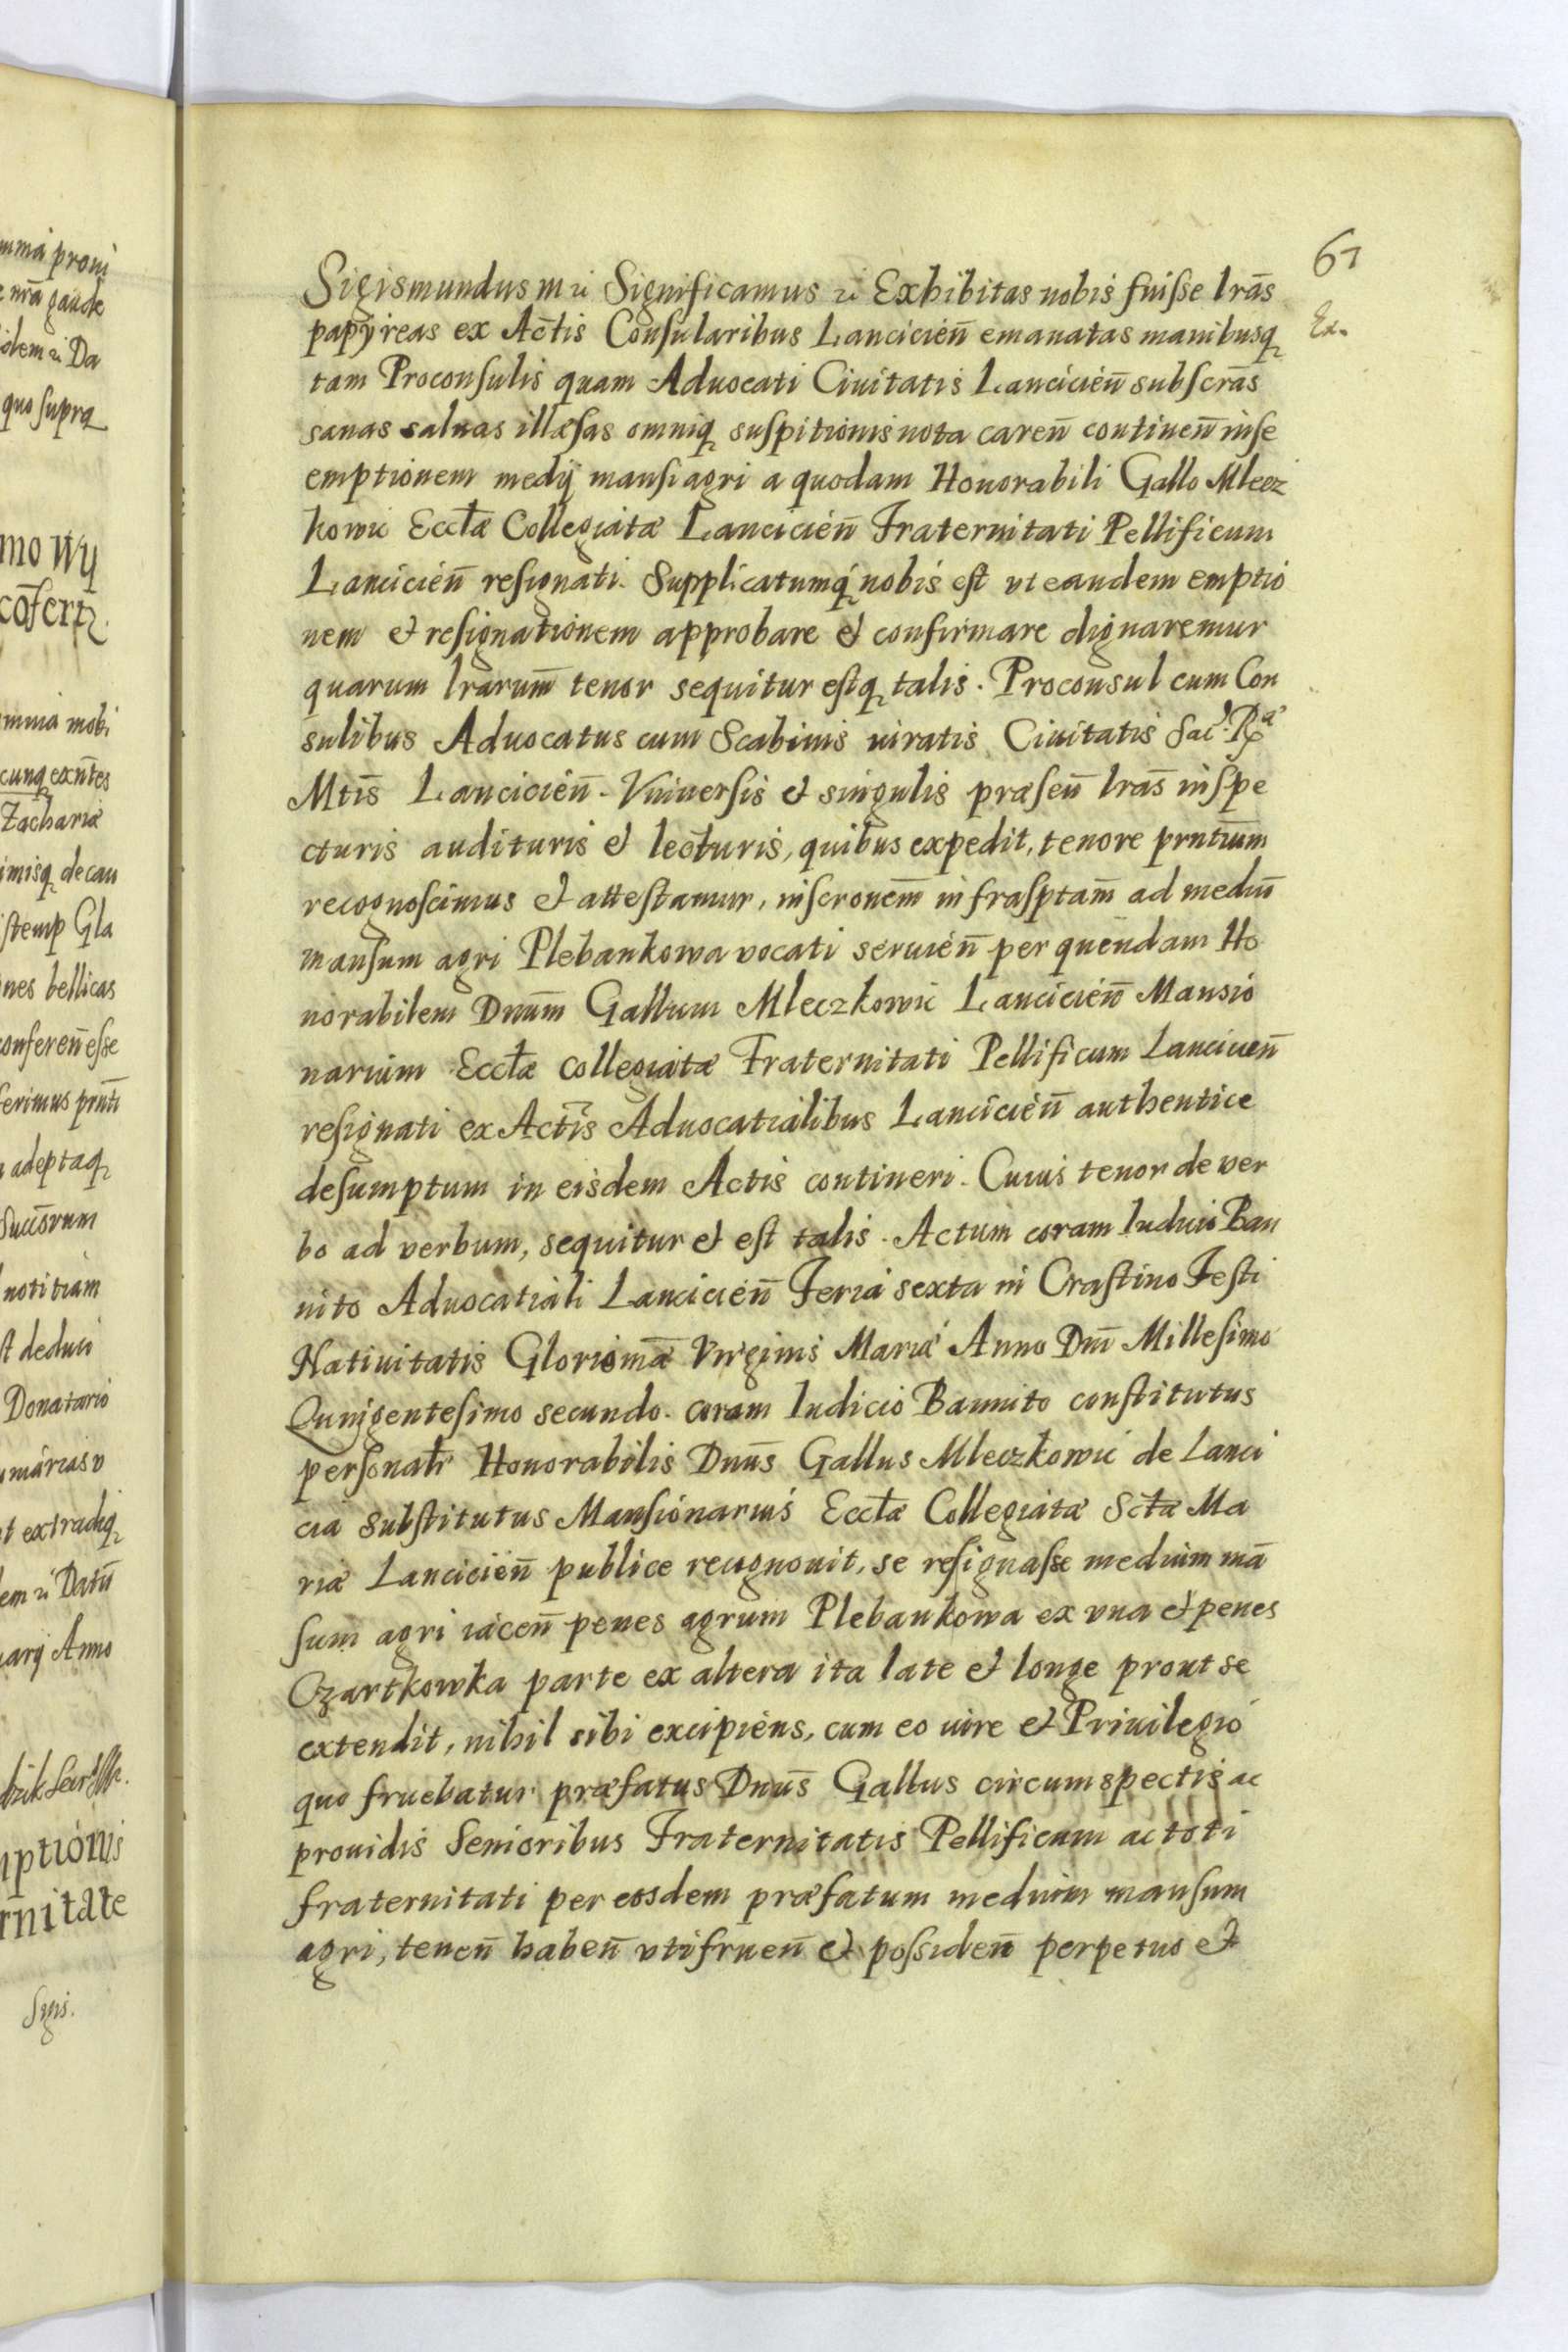 61
Sigismundus III etc Significamus etc Exhibitas nobis fuisse lrãs
Ex.
papyreas ex Actis Consularibus Lancicień emanatas manibusq
tam Proconsulis quam Aduocati Ciuitatis Lancicień subscrãs
sanas saluas illæsas omniq suspitionis nota careñ contineñ in se
emptionem medij mansi agri a quodam Honorabili Gallo Mlecz
kowic Ecclæ Collegiatæ Lancicień Fraternitati Pellificum
Lancicień resignati. Supplicatumq nobis est vt eandem emptio
nem et resignationem approbare et confirmare dignaremur
quarum lrarum tenor sequitur estq talis. Proconsul cum Con
sulibus Aduocatus cum Scabinis iuratis Ciuitatis Sac. Rã
Mtis Lancicień. Vniuersis et singulis præseñ lrãs inspe
cturis audituris et lecturis, quibus expedit, tenore prntium
recognoscimus et attestamur, inscronem infrasptam ad mediũ
mansum agri Plebankowa vocati seruień per quendam Ho
norabilem Dnum Gallum Mleczkowic Lancicień Mansio
narium Ecclæ Collegiatæ Fraternitati Pellificum Lancicień
resignati ex Actis Aduocatialibus Lancicień authentice
desumptum in eisdem Actis contineri. Cuius tenor de ver
bo ad verbum, sequitur et est talis. Actum coram Iudicio Ban
nito Aduocatiali Lancicień Feria sexta in Crastino Festi
Natiuitatis Gloriomæ Virginis Mariæ Anno Dni Millesimo
Quingentesimo secundo. coram Iudicio Bannito constitutus
personalr Honorabilis Dnus Gallus Mleczkowic de Lanci
cia substitutus Mansionarius Ecclæ Collegiatæ Sctæ Ma
riæ Lancicień publice recognouit, se resignasse medium mã
sum agri iaceñ penes agrum Plebankowa ex vna et penes
Ozartkowka parte ex altera ita late et longe prout se
extendit, nihil sibi excipiens, cum eo iure et Priuilegio
quo fruebatur præfatus Dnus Gallus circumspectis ac
prouidis Senioribus Fraternitatis Pellificum ac toti
fraternitati per eosdem præfatum medium mansum
agri, teneñ habeñ vtifrueñ et possideñ perpetuo et